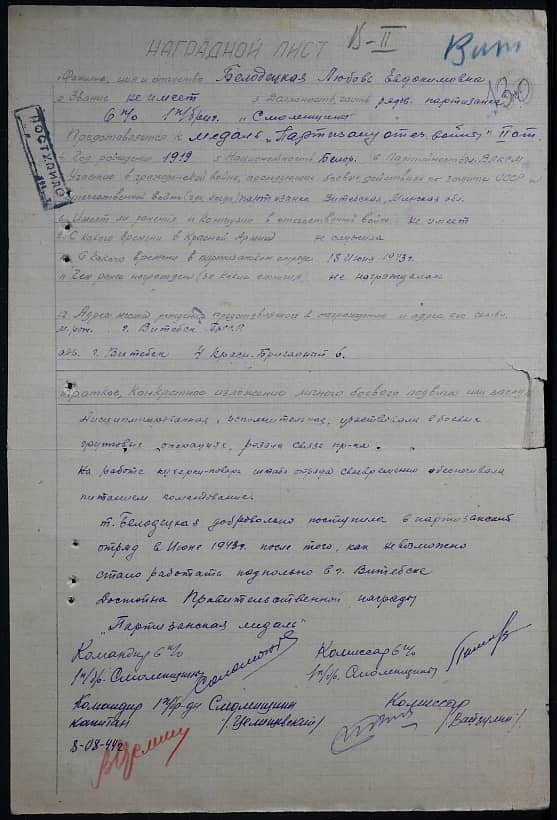 В-II
Вит
130
НАГРАДНОЙ ЛИСТ
Фамилия, имя и отчество Белодецкая Любовь Евдокимовна
2. Звание не имеет 3. Должность, часть рядв. партизанка
6 п/о 1 п/бриг. "Смоленщина"
Представляется к медаль "Партизану отеч. войны" II ст.
Год рождения 1919 Национальность Белор. 6 Партийность ВЛКСМ
Участие в гражданской войне, последующих боевых действиях по защите СССР и
отечественной войне партизанка Витебская, Минская обл.
Имеет ли ранения и контузии в отечественной войне не имеет
С какого времени в Красной Армии не служила
С какого времени в партизанском отряде 18 июня 1943 г.
Чем ранее награжден (за какие отличия) не награждалась
Адрес места представляемого к награждению и адрес его семьи.
г. Витебск БССР
г. Витебск 4
Краткое, конкретное изложение личного боевого подвига или заслуг
Дисциплинированная, исполнительная, участвовала в боевых
групповых операциях, связи пр-ка.
На работе штаба отряда своевременно обеспечивала
питанием командование.
т. Белодецкая добровольно поступила в партизанский
отряд в июне 1943 г. после того, как невозможно
стало работать подпольно в г. Витебске
Достойна Правительственной награды
"Партизанская медаль"
Командир 6 п/о Комиссар 6 п/о
1 п/бр. Смоленщина 1 п/бр. Смоленщина
Командир 1 п/бр-ды Смоленщина Комиссар
капитан
8-08-44 г.